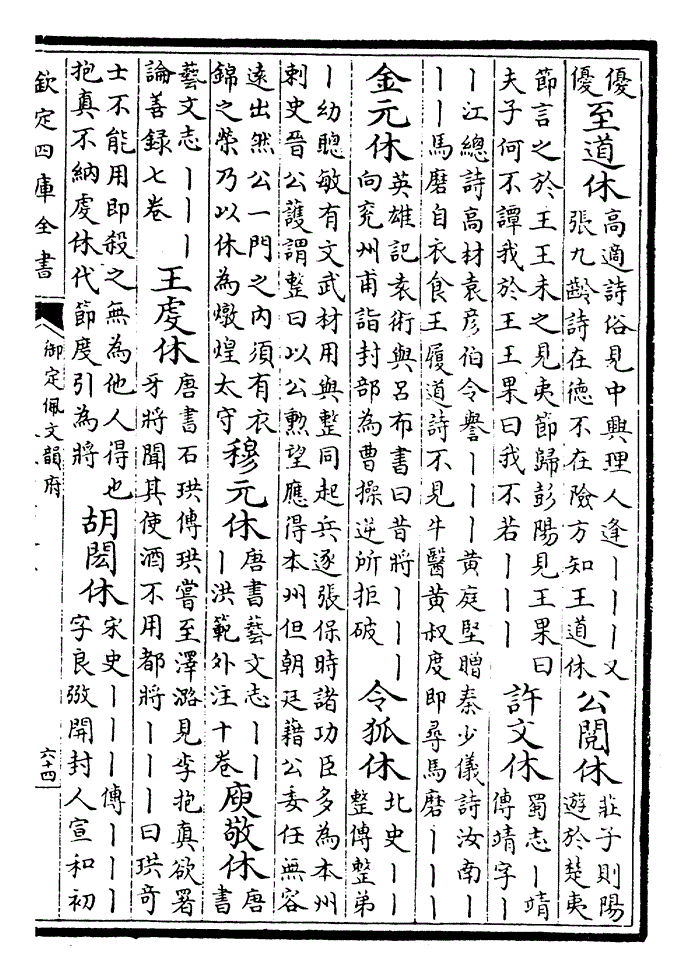 優優至道休高適詩俗見中興理人逢丨丨丨又張九齡詩在德不在險方知王道休公閱休莊子則陽遊於楚夷
節言之於王王未之見夷節歸彭陽見王果曰夫子何不譚我於王王果曰我不若丨丨丨許文休蜀志丨靖傳靖字丨
丨江總詩高材袁彦伯令譽丨丨丨黄庭堅贈秦少儀詩汝南丨丨丨馬磨自衣食王履道詩不見牛醫黄叔度即尋馬磨丨丨丨
金元休英雄記袁術與吕布書曰昔將丨丨丨向兖州甫詣封部為曹操逆所拒破令狐休北史丨丨整傳整弟
丨幼聰敏有文武材用與整同起兵逐張保時諸功臣多為本州刺史晉公護謂整曰以公勲望應得本州但朝廷藉公委任無容
遠出然公一門之内須有衣錦之榮乃以休為燉煌太守穆元休唐書藝文志丨丨丨洪範外注十卷庾敬休唐書
藝文志丨丨丨論善録七卷王虔休唐書石珙傳珙嘗至澤潞見李抱真欲署牙將聞其使酒不用都將丨丨丨曰珙奇
士不能用即殺之無為他人得也抱真不納虔休代節度引為將胡閎休宋史丨丨丨傳丨丨丨字良弢開封人宣和初
欽定四庫全書
御定佩文韻府
六十四